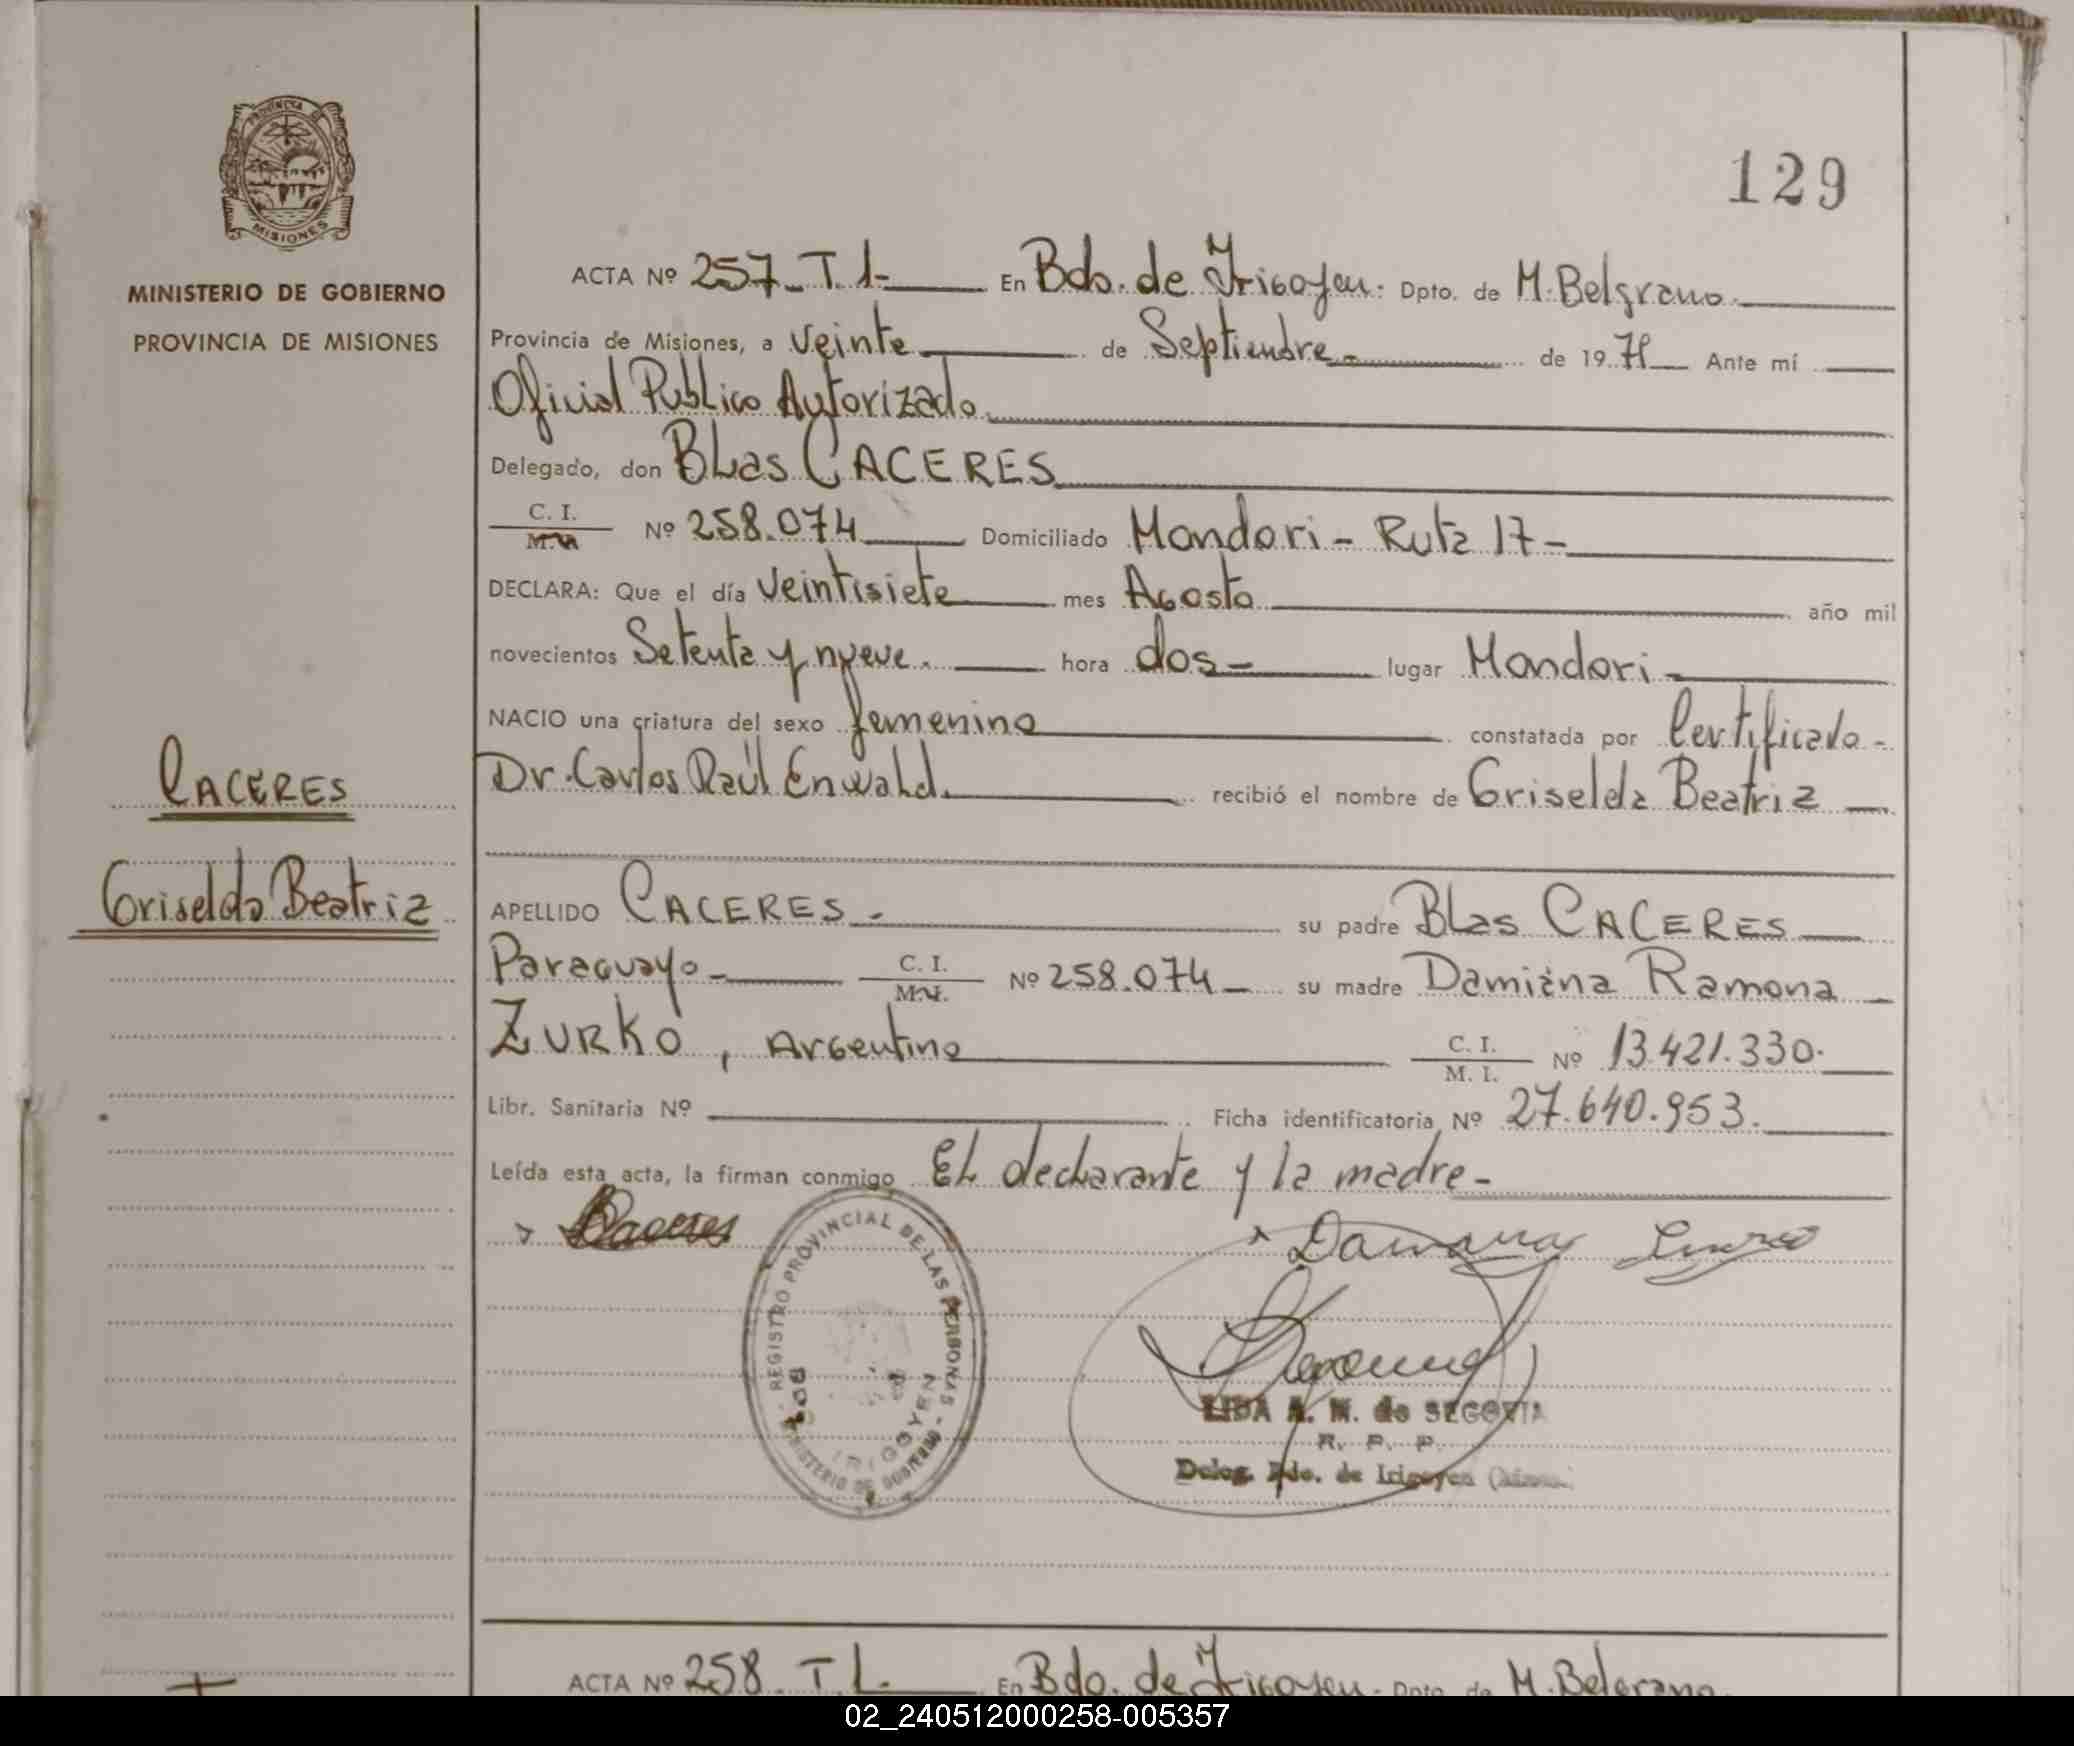 PROVINCIA DE
MISIONES
MINISTERIO DE GOBIERNO
PROVINCIA DE MISIONES
CACERES
Griselda Beatriz
129
ACTA Nº 257_ T 1- En Bdo. de Irigoyen. Dpto. de M. Belgrano.
Provincia de Misiones, a veinte de Septiembre- de 19 79 Ante mí
Oficial Publico Autorizado
Delegado, don BLas CACERES
C. I.
M. I. Nº 258.074 Domiciliado Mondori - Ruta 17-
DECLARA: Que el día veintisiete mes Agosto año mil
novecientos Setenta y nueve. hora dos- lugar Mondori-
NACIO una criatura del sexo femenino constatada por Certificado-
Dr. Carlos Raúl Enwald. recibió el nombre de Griselda Beatriz
APELLIDO CACERES- su padre BLas CACERES
Paraguayo- C. I.
M. I. Nº 258.074 su madre Damiana Ramona
ZURKO, Argentina C. I.
M. I. Nº 13.421.330.
Libr. Sanitaria Nº Ficha identificatoria Nº 27.640.953.
Leída esta acta, la firman conmigo EL declarante y la madre-
BCaceres
Damiana
REGISTRO PROVINCIAL DE LAS PERSONAS - MINISTERIO DE GOBIERNO -
BDO. DE IRIGOYEN
LIDA A. M. de SEGOVIA
R. P. P.
Deleg. Bdo. de Irigoyen
ACTA Nº 258 T 1. En Bdo. de Irigoyen. Dpto. de M. Belgrano.
02_240512000258-005357